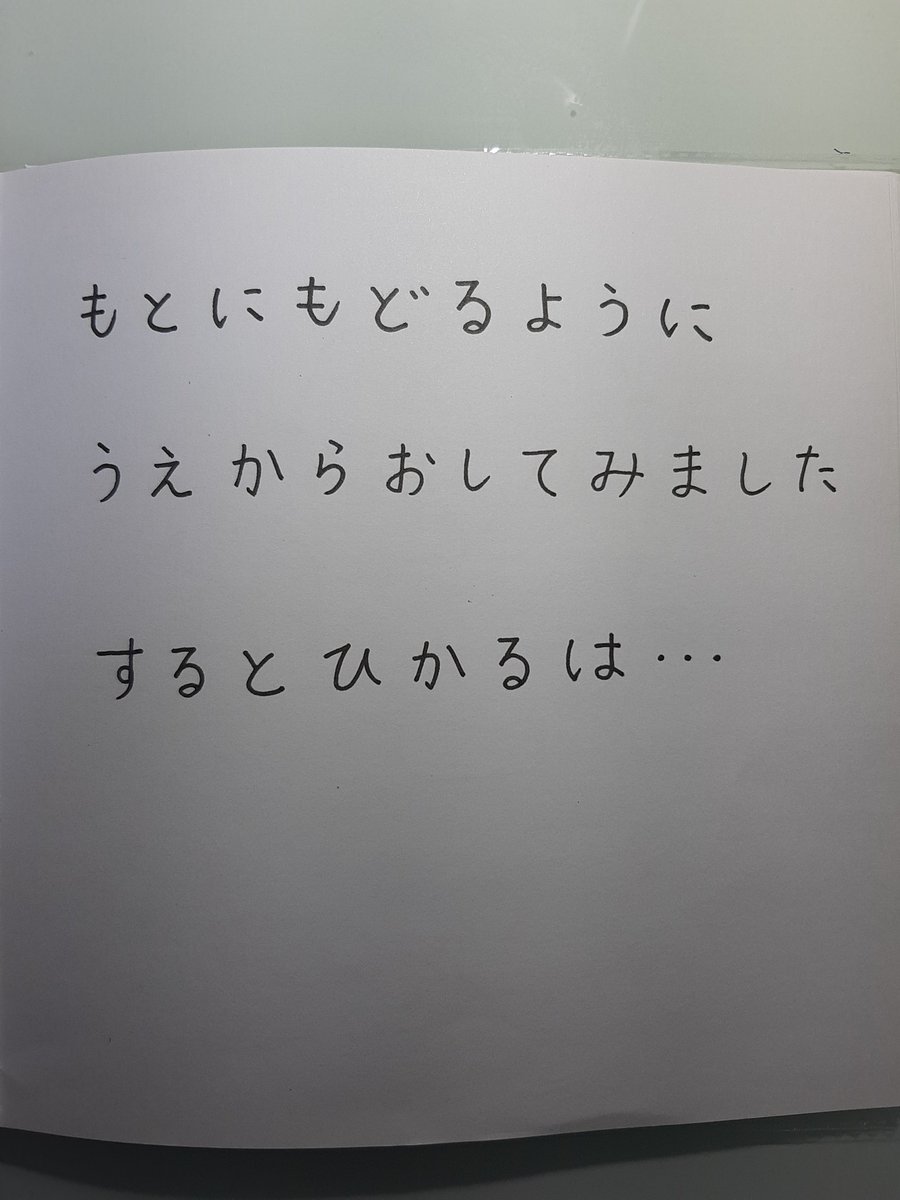 もとにもどるように
うえからおしてみました
するとひかるは…